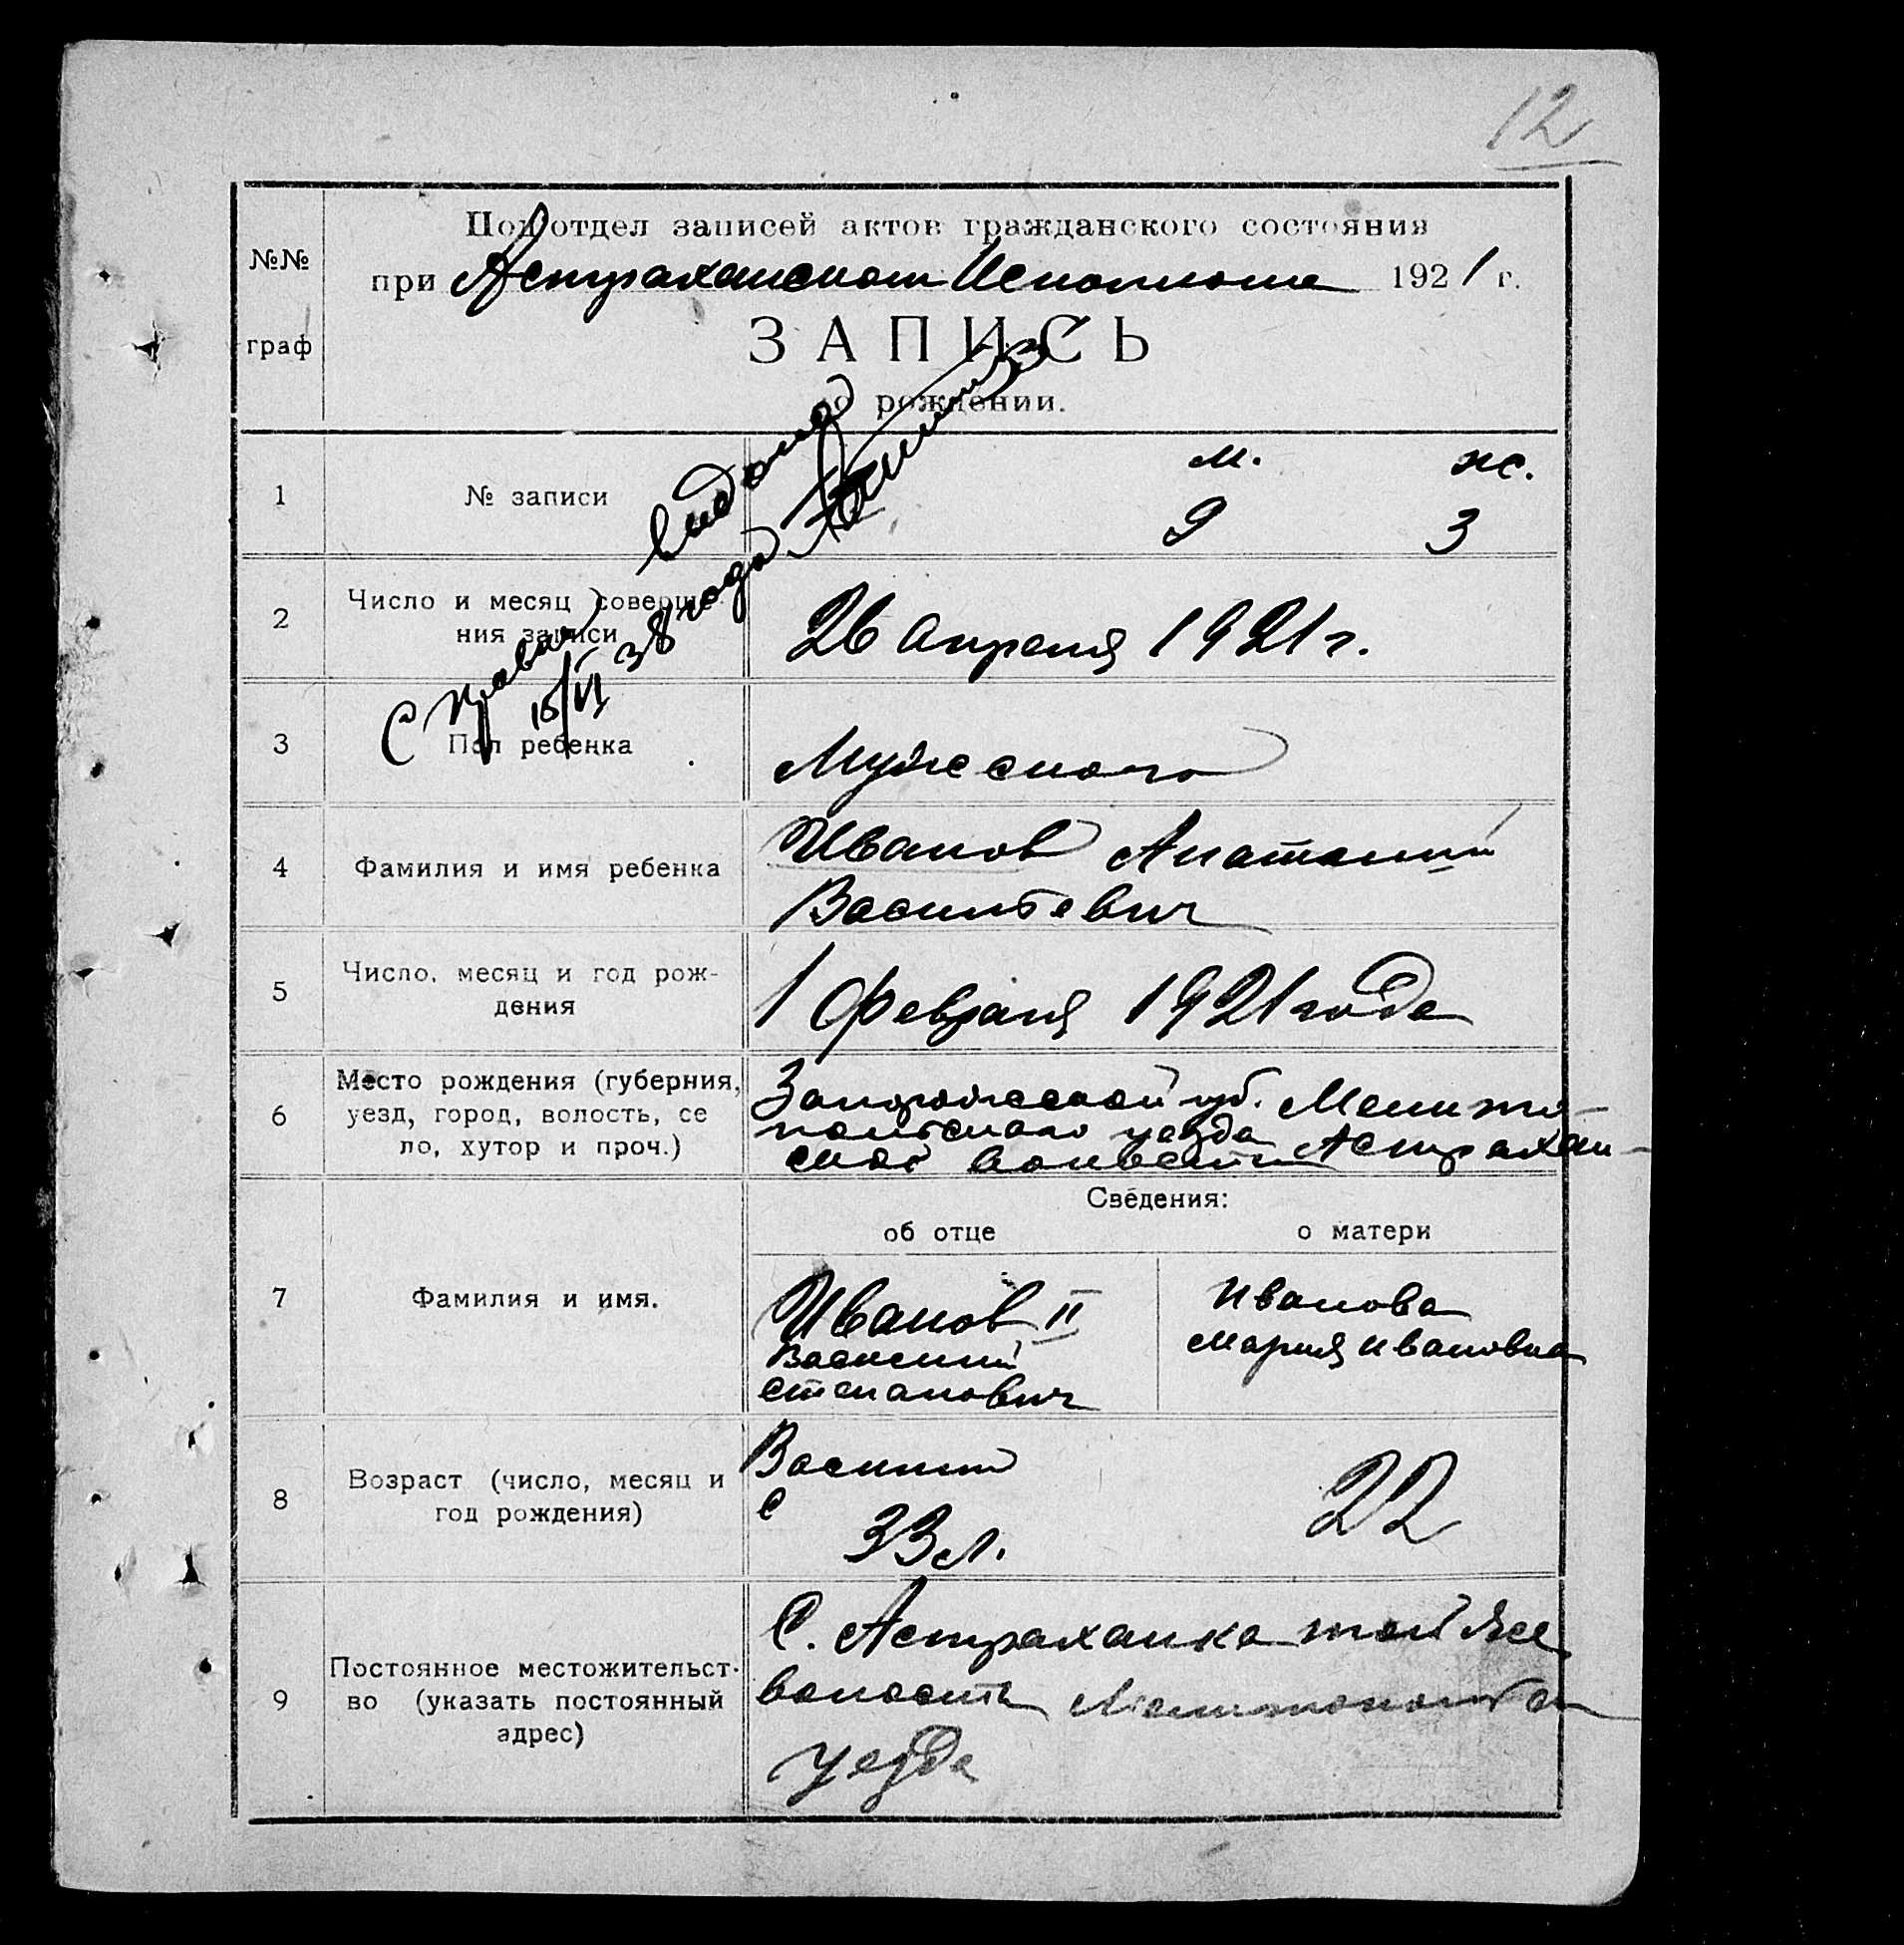 12
№№
граф
Подотдел записей актов гражданского состояния
при Астраханском Исполкоме 1921 г.
ЗАПИСЬ
о рождении.
Справка выдана
15/VI 38 года
1
№ записи
м. ж.
9 3
2
Число и месяц соверше-
ния записи
26 апреля 1921 г.
3
Пол ребенка
Мужского
4
Фамилия и имя ребенка
Иванов Анатолий
Васильевич
5
Число, месяц и год рож-
дения
1 февраля 1921 года
6
Место рождения (губерния,
уезд, город, волость, се
ло, хутор и проч.)
Запорожской губ. Мелито-
польского уезда Астрахан-
ской волости
Сведения:
об отце
о матери
7
Фамилия и имя.
Иванов II
Василий
Степанович
Иванова
Мария Ивановна
8
Возраст (число, месяц и
год рождения)
Василий
С
33 л.
22
9
Постоянное местожительст-
во (указать постоянный
адрес)
С. Астраханка той же
волости
уезда